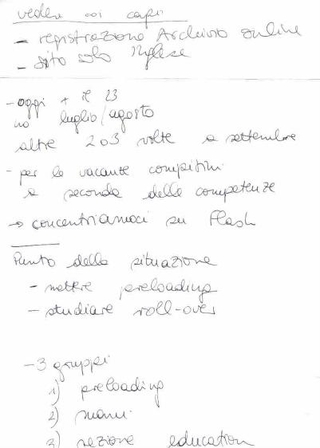 vedere coi capi
- registrazione Archivio online
- sito solo Inglese
- oggi + il 23
no luglio/agosto
altre 2 o 3 volte a settembre
- per le vacanze compitini
a seconda delle competenze
→ concentriamoci su Flash
Punto della situazione
- mettere preloading
- studiare roll-over
- 3 gruppi
1) preloading
2) menu
3) sezione education